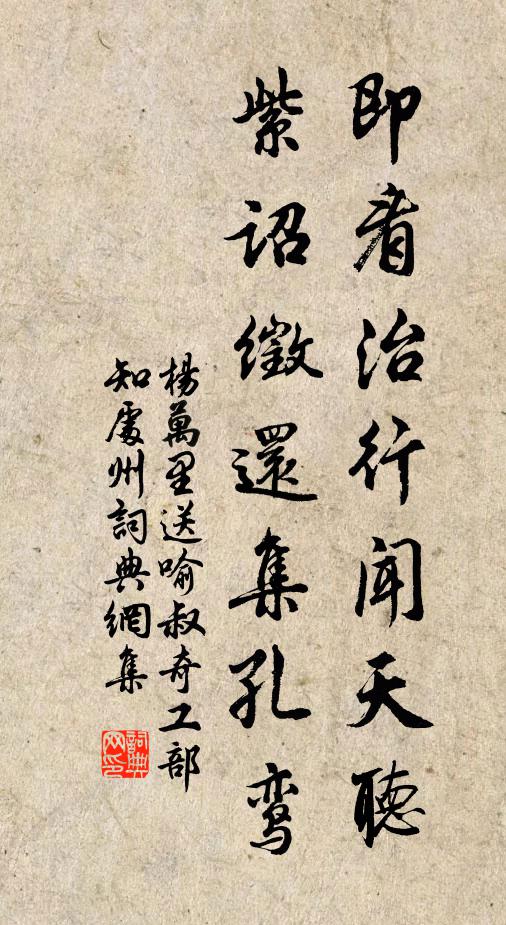 即看治行闻天聽
紫诏徵還集孔鸾
楊萬里送喻叔奇工部
知處州詞典網集
詞典网印